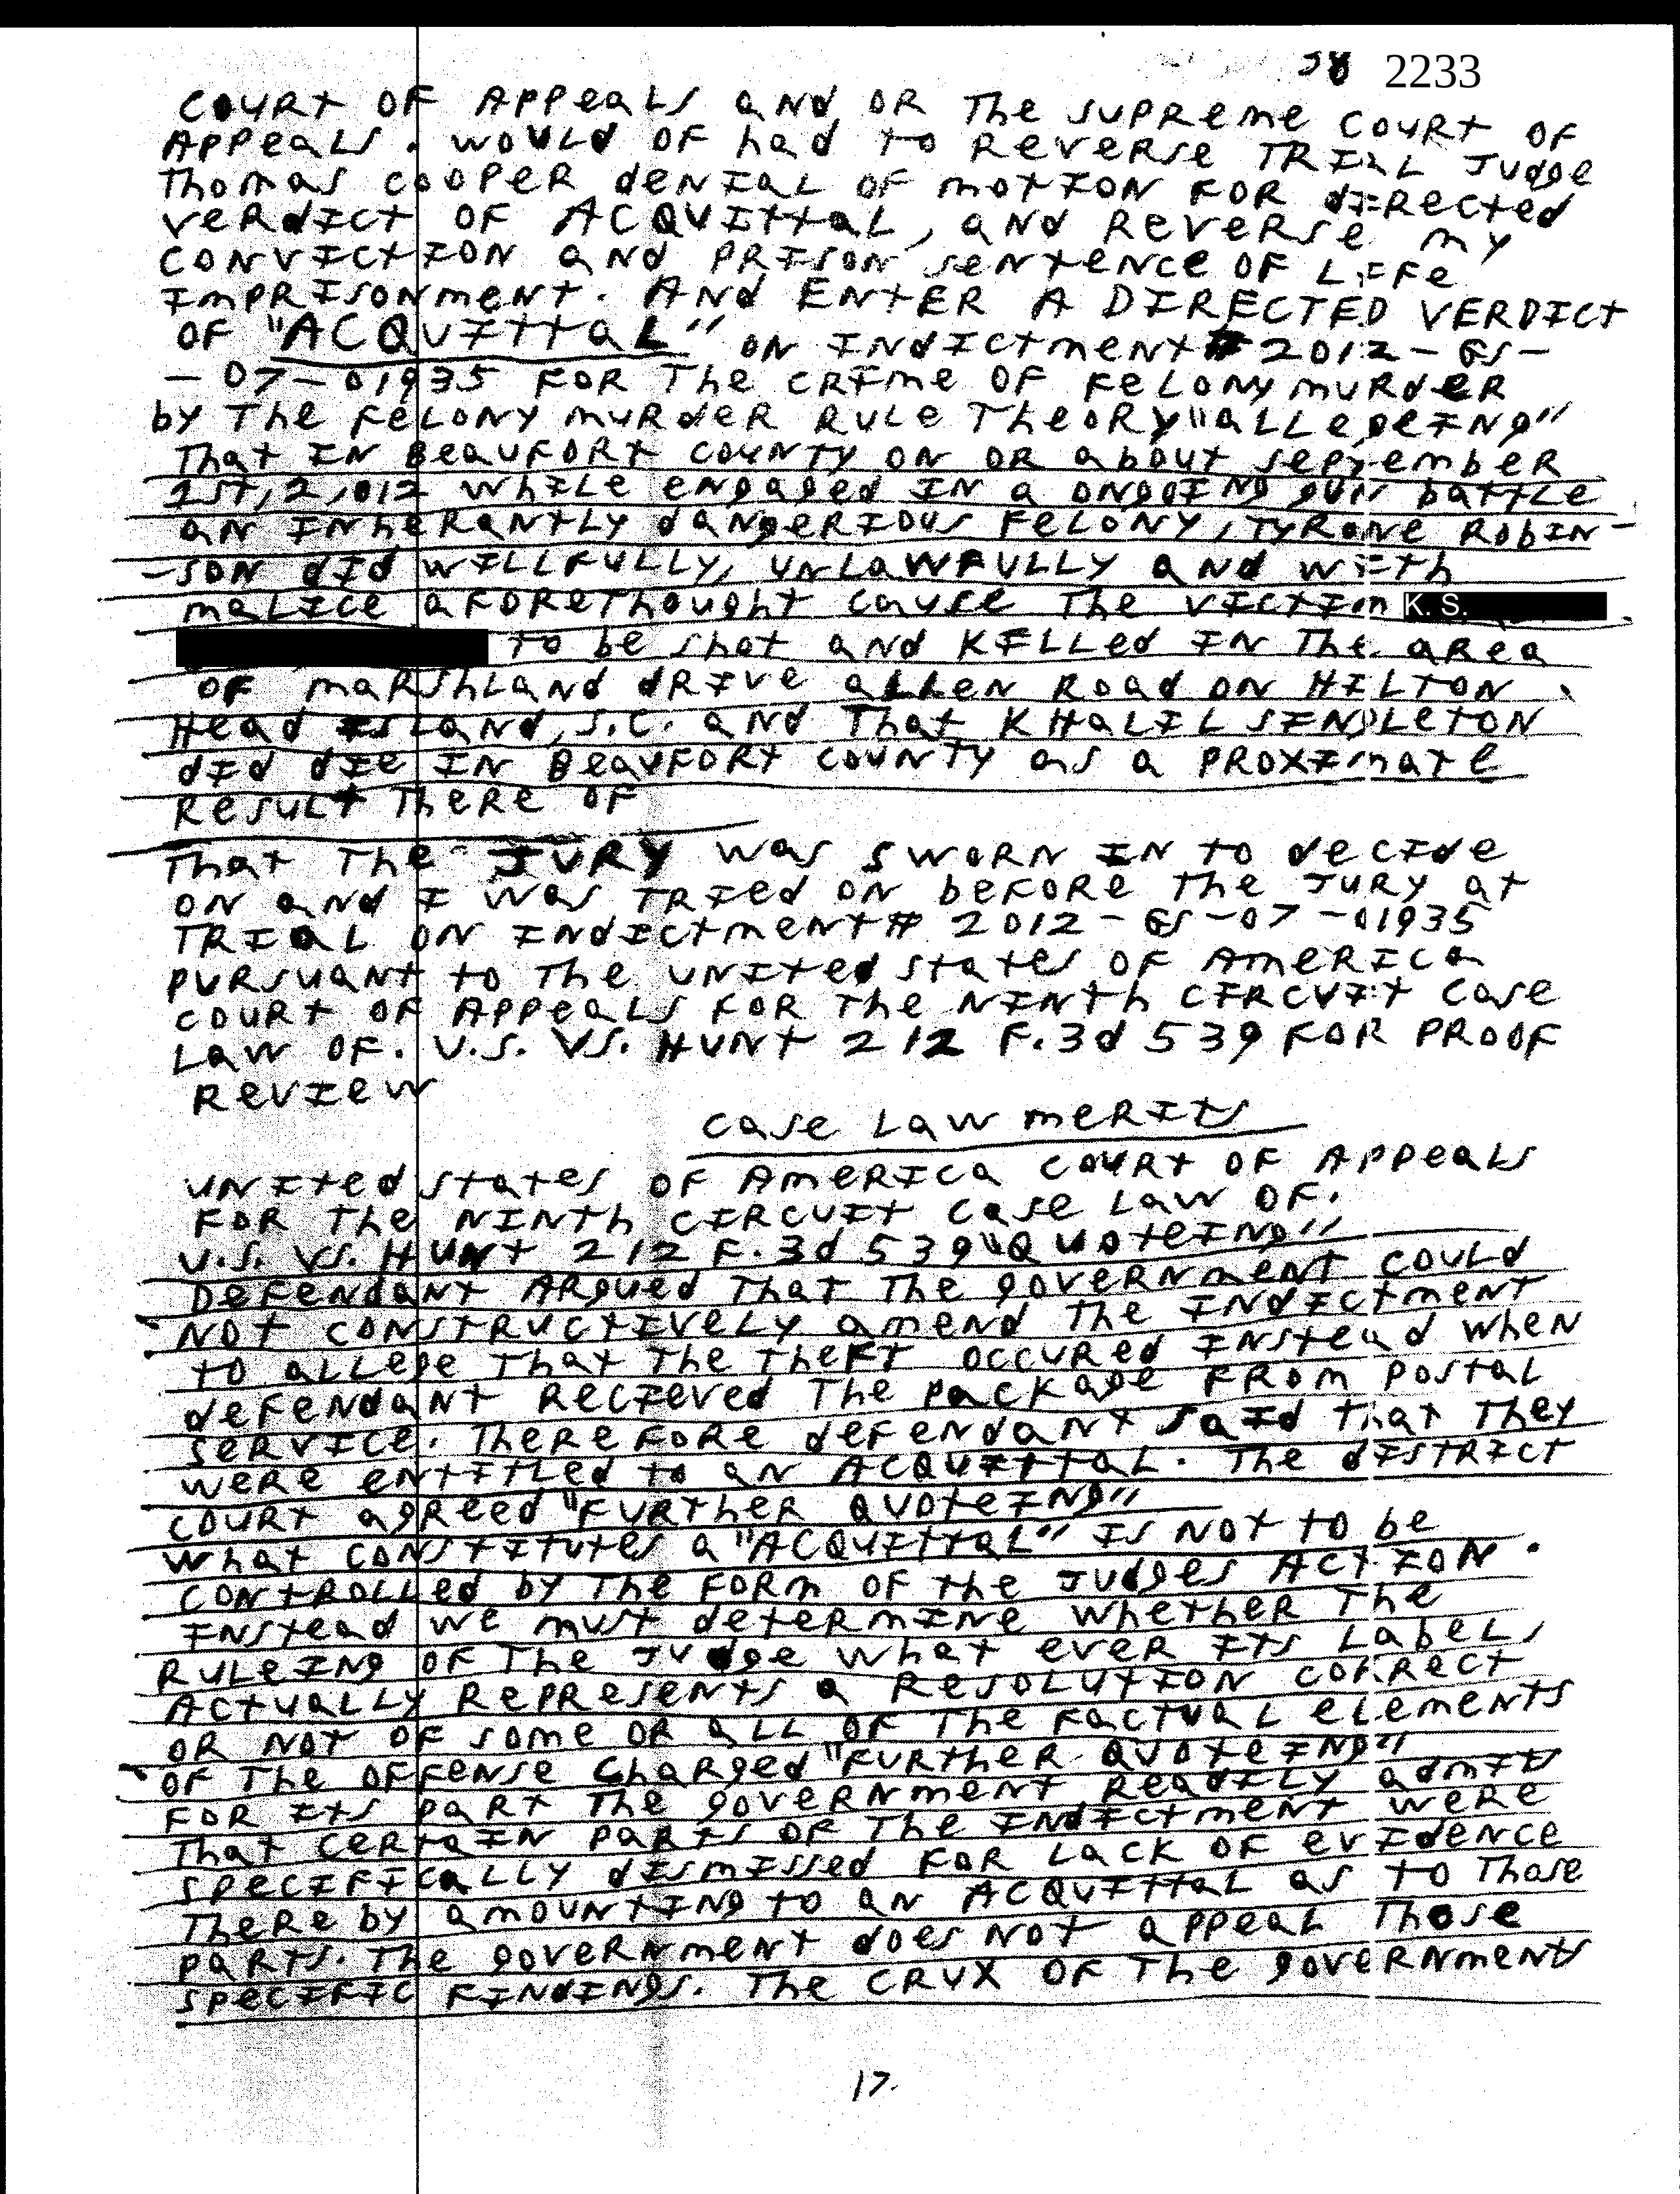 38 2233
COURT OF APPEALS AND OR The SUPREME COURT OF
APPEALS. WOULD OF had to REVERSE TRIAL Judge
Thomas COOPER denIAL OF motION FOR dIRected
verdIct OF ACQUIttaL, and Reverse my
CONVICTION and PRISON sentence OF LIFe
ImPRISONment. And ENTER A DIRECTED VERDICT
OF "ACQUIttaL" ON INdIctment # 2012-GS-
-07-01935 FOR The CRIme OF FeLONy muRdeR
by The FeLONY muRdeR RULE TheORY "aLLegeING"
That IN BeaUFORt COUNTY ON OR about september
1st, 2,012 whILE engaged IN a ongoING gun battle
an INheRantLY dangeRIOUS FeLONY, TYRONE RObIN-
-SON dId WILLFULLY, UNLAWFULLY and wIth
maLIce aFOReThought cause The vIctIm K. S.
to be shot and KILLed IN The area
OF maRshLand dRIve aLLen Road on HILTON
Head IsLand, S.C. and That KHALIL SINgLeTON
dId dIe IN BeaUFORt COUNTY as a PROXImate
ResuLt TheRe OF
That The JURY was sworn IN to decIde
ON and I was TRIed ON beFORe The JURY at
TRIaL ON INdIctment # 2012-GS-07-01935
PURSUANT to The UNIted states OF AmeRIca
COURT OF APPeaLs FOR The NINTh CIRCUIt case
Law OF. U.S. VS. HUNt 212 F.3d 539 FOR PROOF
RevIew
case Law meRIts
UNIted states OF AmeRIca COURt OF APPeaLs
FOR The NINTh CIRCUIt case Law OF.
U.S. VS. HUNt 212 F.3d 539 "QUOteING"
DeFendant ARgued That The goveRNment couLd
NOt CONSTRUCtIveLy amend The INdIctment
to aLLege That The TheFt OCCURed INstead when
deFendant RecIeved The package FROm postaL
seRvIce. TheReFORe deFendant saId that They
weRe entItLed to an ACQUIttaL. The dISTRICT
COURt agReed "FURtheR QUOteING"
what CONSTItutes a "ACQUIttaL" IS NOt to be
CONTROLLed by The FORm OF the Judges ActION.
INstead we must deteRmINe whetheR The
RuLeINg OF The Judge what eveR Its LabeL,
ActuaLLy RepResents a ResoLutION CORRect
OR NOt OF some OR aLL OF The FactuaL eLements
OF The OFFense ChaRged "FURtheR QUOteING"
FOR Its paRt The goveRNment ReadILy admIts
That ceRtaIN paRts OF The INdIctment weRe
specIFIcaLLy dIsmIssed FOR Lack OF evIdence
TheRe by amountINg to an ACQUIttaL as to Those
paRts. The goveRNment does NOt appeaL Those
specIFIc FINdINgs. The CRUX OF The goveRNments
17.